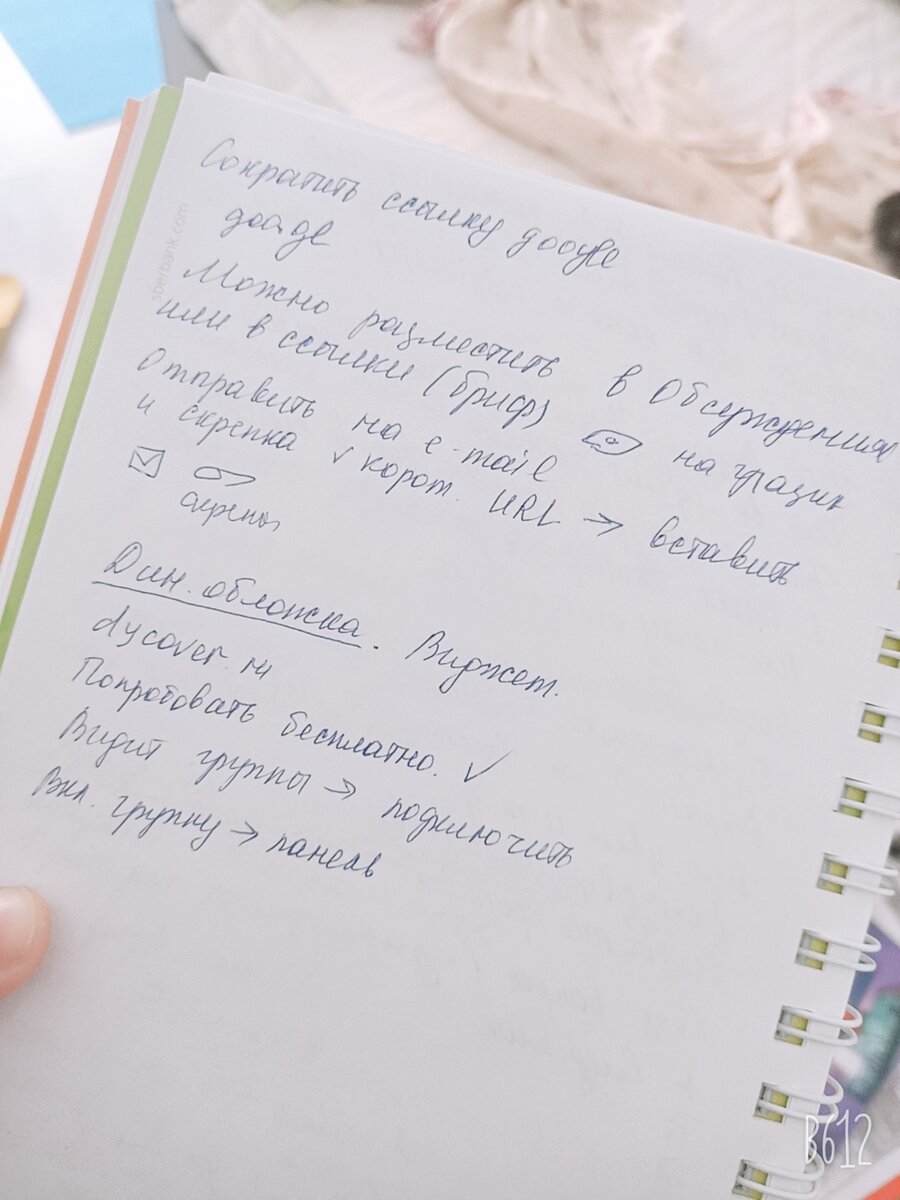 Сократить ссылку google
Можно разместить в обсуждениях
или в ссылки (бриф)
Отправить на e-mail на гугл
и скрепка ✓ корот. URL → вставить
скрепы
Дин. обложка. Виджет.
dycover.ru
Попробовать бесплатно. ✓
Видит группы → подключить
Вкл. группу → панель
sberbank.com
B612